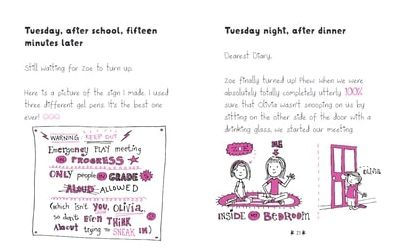 Tuesday, after school, fifteen
minutes later
Still waiting for Zoe to turn up.
Here is a picture of the sign I made. I used
three different gel pens. It's the best one
ever!
WARNING KEEP OUT
Emergency PLAY meeting
IN PROGRESS
ONLY people IN GRADE
ALOUD ALLOWED
(which isn't YOU, OLIVIA,
so don't EVEN THINK
About trying to SNEAK IN)
Tuesday night, after dinner
Dearest Diary,
Zoe finally turned up! Phew. When we were
absolutely totally completely utterly 100%
sure that Olivia wasn't snooping on us by
sitting on the other side of the door with a
drinking glass, we started our meeting.
ZOE ME
olivia
INSIDE MY BEDROOM
21